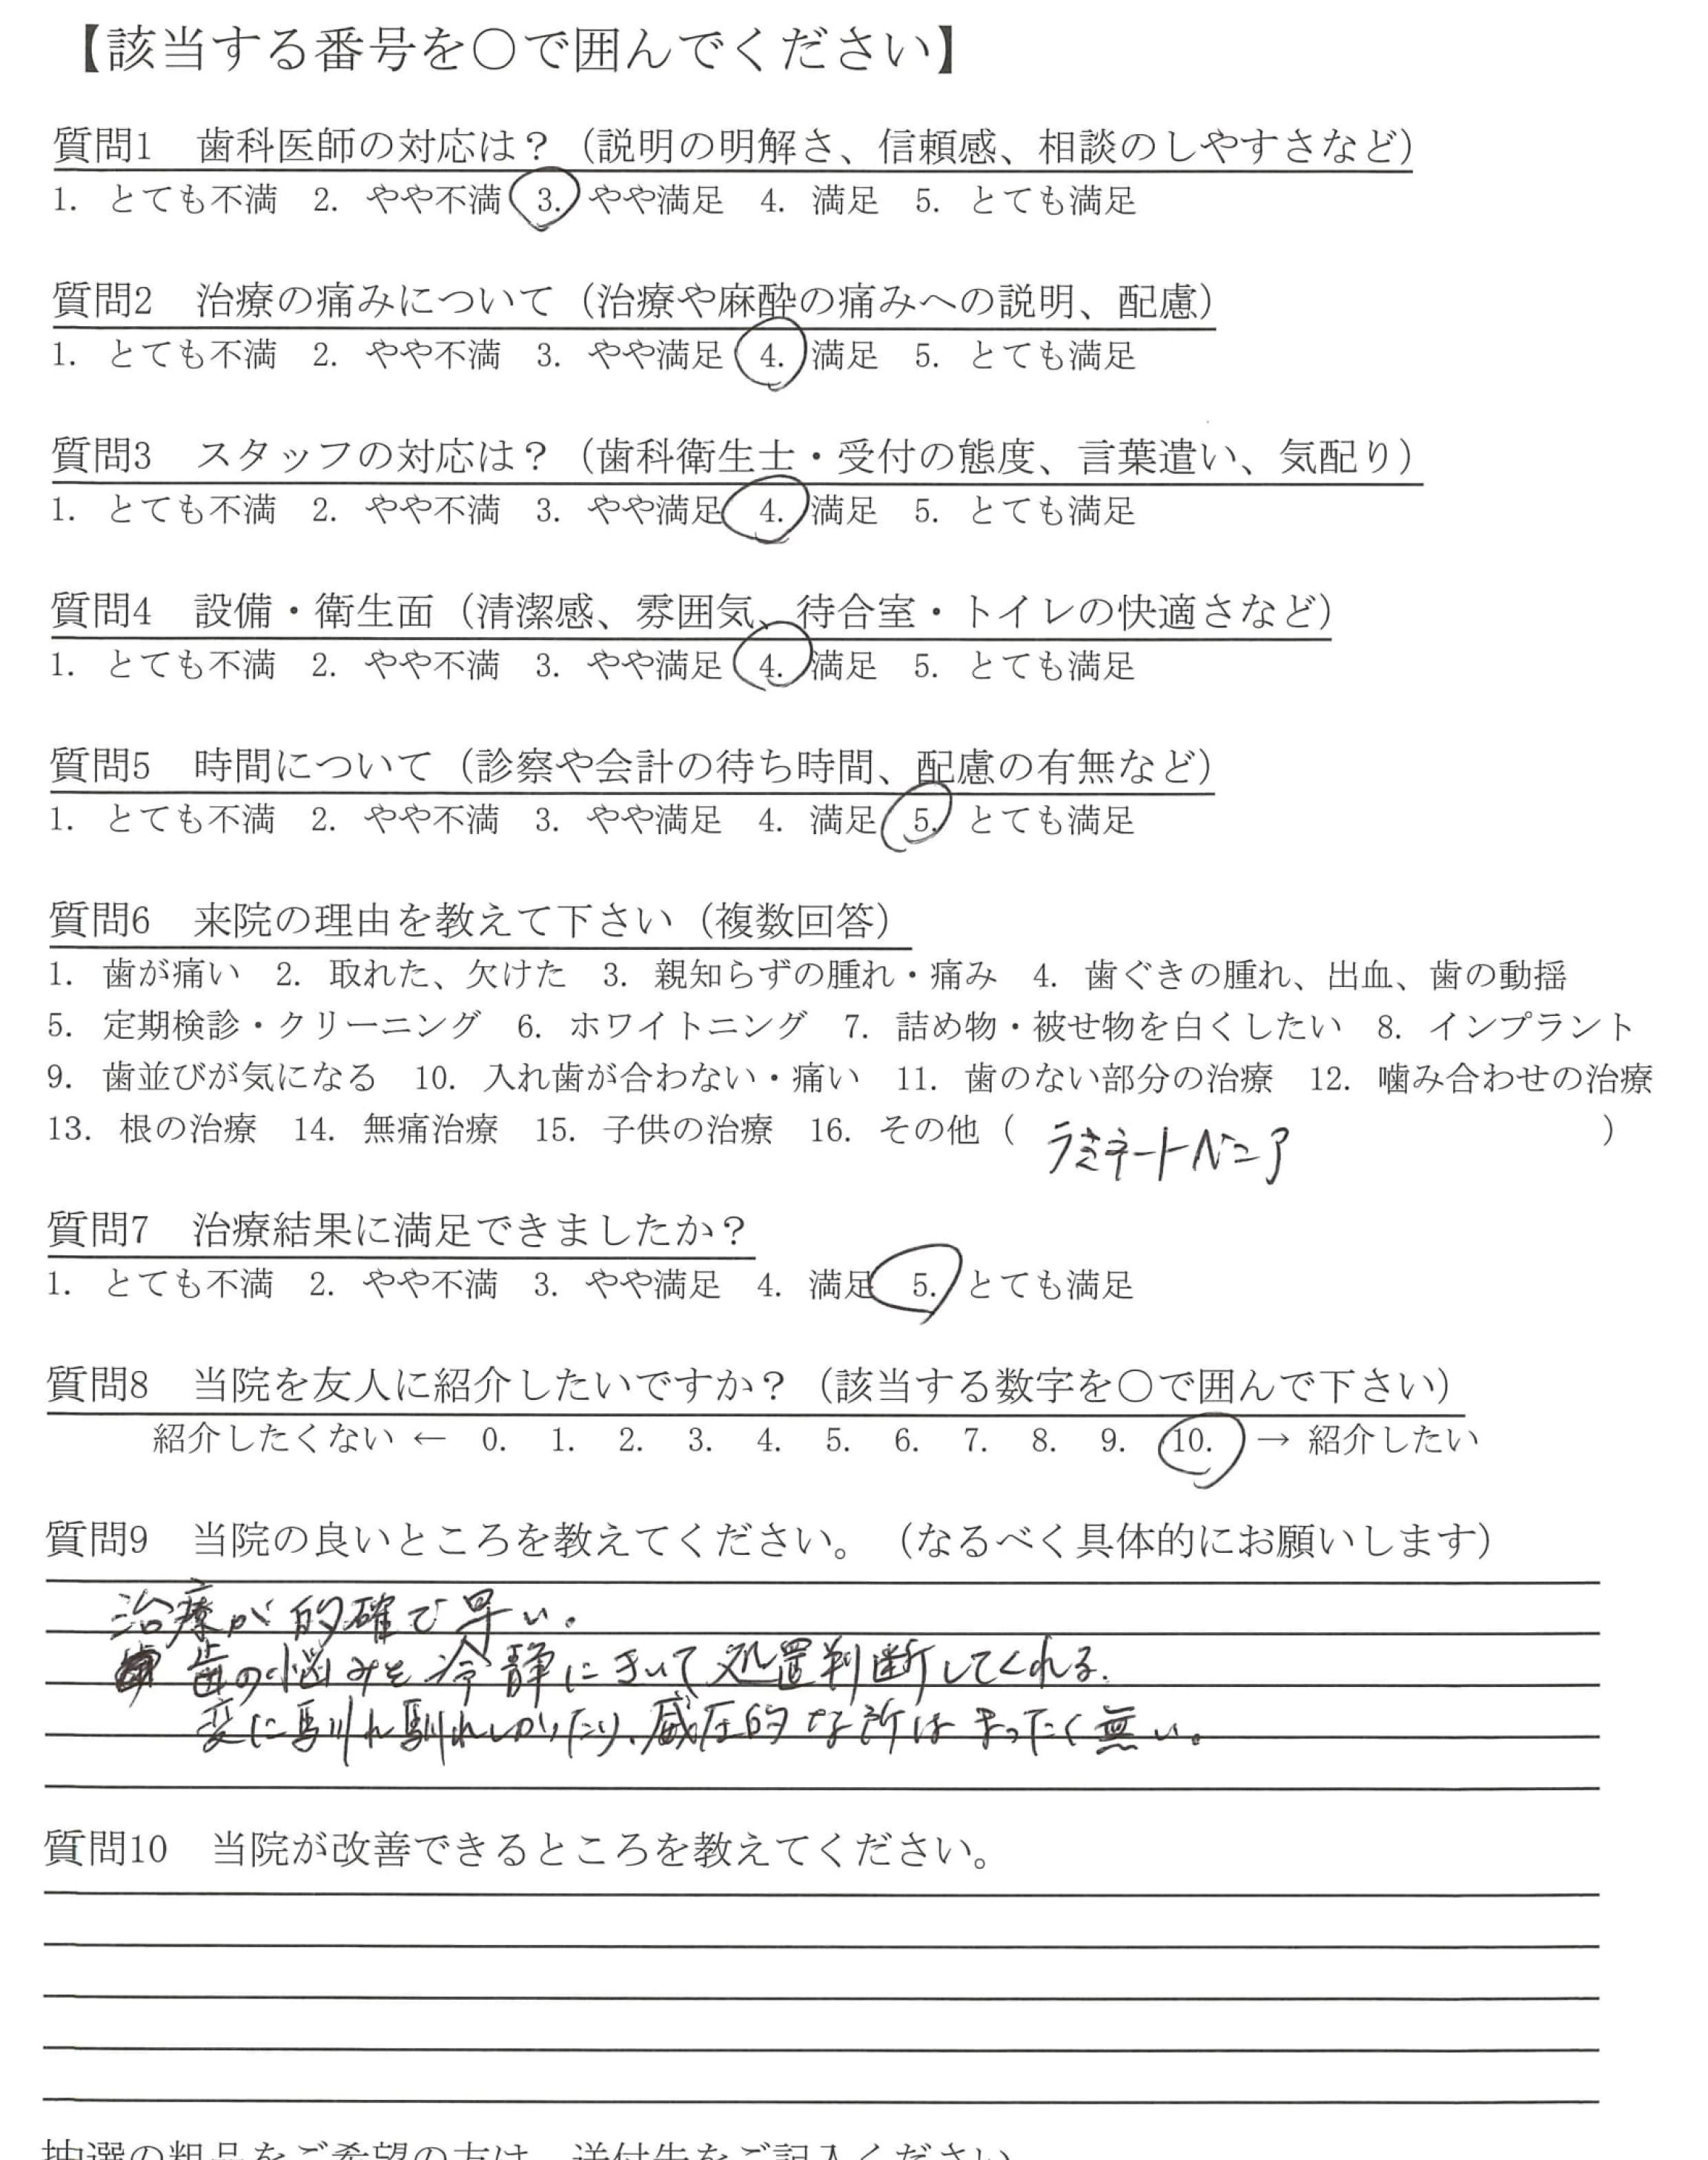 【該当する番号を○で囲んでください】
質問1　歯科医師の対応は？（説明の明解さ、信頼感、相談のしやすさなど）
1. とても不満　2. やや不満　3. やや満足　4. 満足　5. とても満足
質問2　治療の痛みについて（治療や麻酔の痛みへの説明、配慮）
1. とても不満　2. やや不満　3. やや満足　4. 満足　5. とても満足
質問3　スタッフの対応は？（歯科衛生士・受付の態度、言葉遣い、気配り）
1. とても不満　2. やや不満　3. やや満足　4. 満足　5. とても満足
質問4　設備・衛生面（清潔感、雰囲気、待合室・トイレの快適さなど）
1. とても不満　2. やや不満　3. やや満足　4. 満足　5. とても満足
質問5　時間について（診察や会計の待ち時間、配慮の有無など）
1. とても不満　2. やや不満　3. やや満足　4. 満足　5. とても満足
質問6　来院の理由を教えて下さい（複数回答）
1. 歯が痛い　2. 取れた、欠けた　3. 親知らずの腫れ・痛み　4. 歯ぐきの腫れ、出血、歯の動揺
5. 定期検診・クリーニング　6. ホワイトニング　7. 詰め物・被せ物を白くしたい　8. インプラント
9. 歯並びが気になる　10. 入れ歯が合わない・痛い　11. 歯のない部分の治療　12. 噛み合わせの治療
13. 根の治療　14. 無痛治療　15. 子供の治療　16. その他（ラミネートベニア）
質問7　治療結果に満足できましたか？
1. とても不満　2. やや不満　3. やや満足　4. 満足　5. とても満足
質問8　当院を友人に紹介したいですか？（該当する数字を○で囲んで下さい）
紹介したくない ← 0. 1. 2. 3. 4. 5. 6. 7. 8. 9. 10. → 紹介したい
質問9　当院の良いところを教えてください。（なるべく具体的にお願いします）
治療が的確で早い。
歯の悩みを冷静にきいて処置判断してくれる。
変に馴れ馴れしかったり、威圧的な所はまったく無い。
質問10　当院が改善できるところを教えてください。
抽選の粗品をご希望の方は、送付先をご記入ください